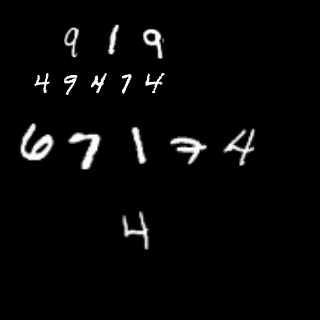 919
49474
67174
4